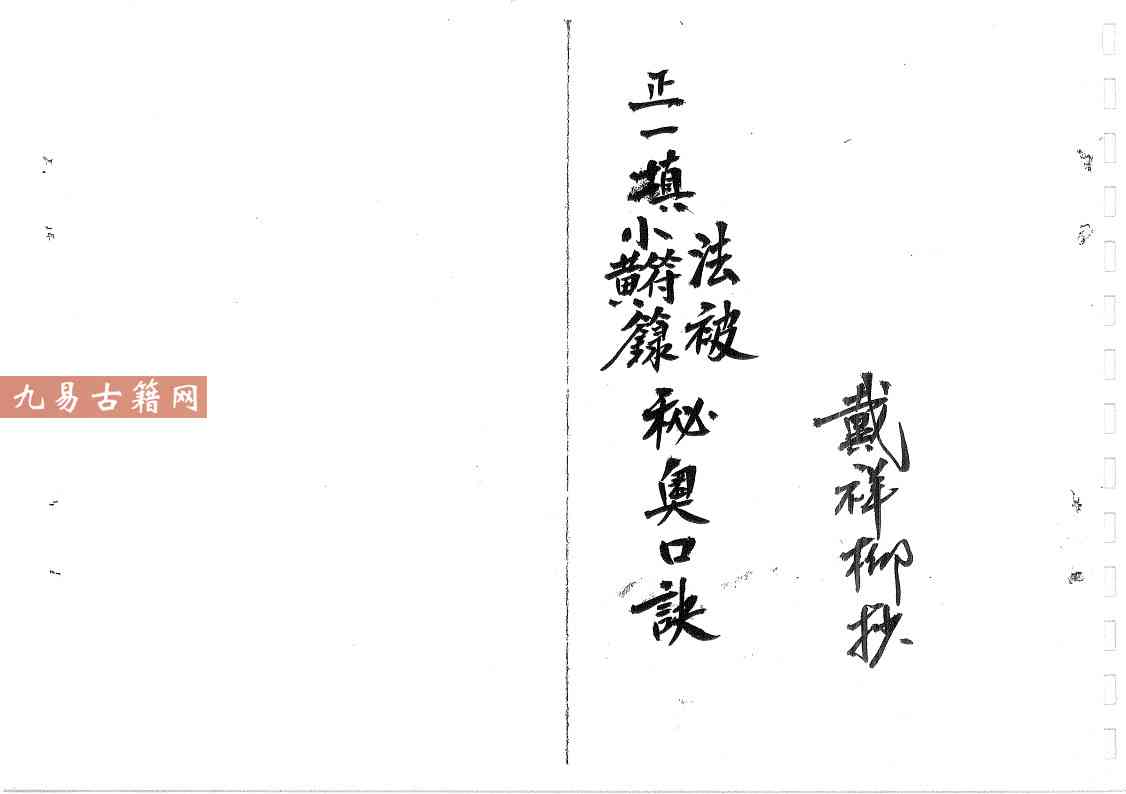 戴祥柳抄
正一填
法被
小符
黄籙
秘奥口訣
九易古籍网